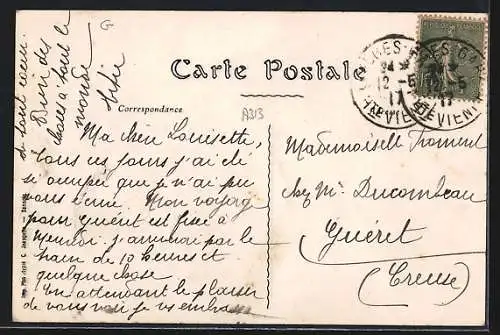 Carte Postale
Correspondance
A313
Ma chère Louisette,
tous ces jours j'ai été
si occupée que je n'ai pu
vous écrire. Mon voyage
pour Guéret est fixé à
Mercredi j'arriverai par le
train de 10 heures et
quelque chose
En attendant le plaisir
de vous voir je vous embrasse
de tout cœur.
Bien des
choses à tout le
monde
Mademoiselle Froment
chez Mr Ducombeau
Guéret
(Creuse)
LIMOGES-GARE
12-5
17
HTE VIENNE